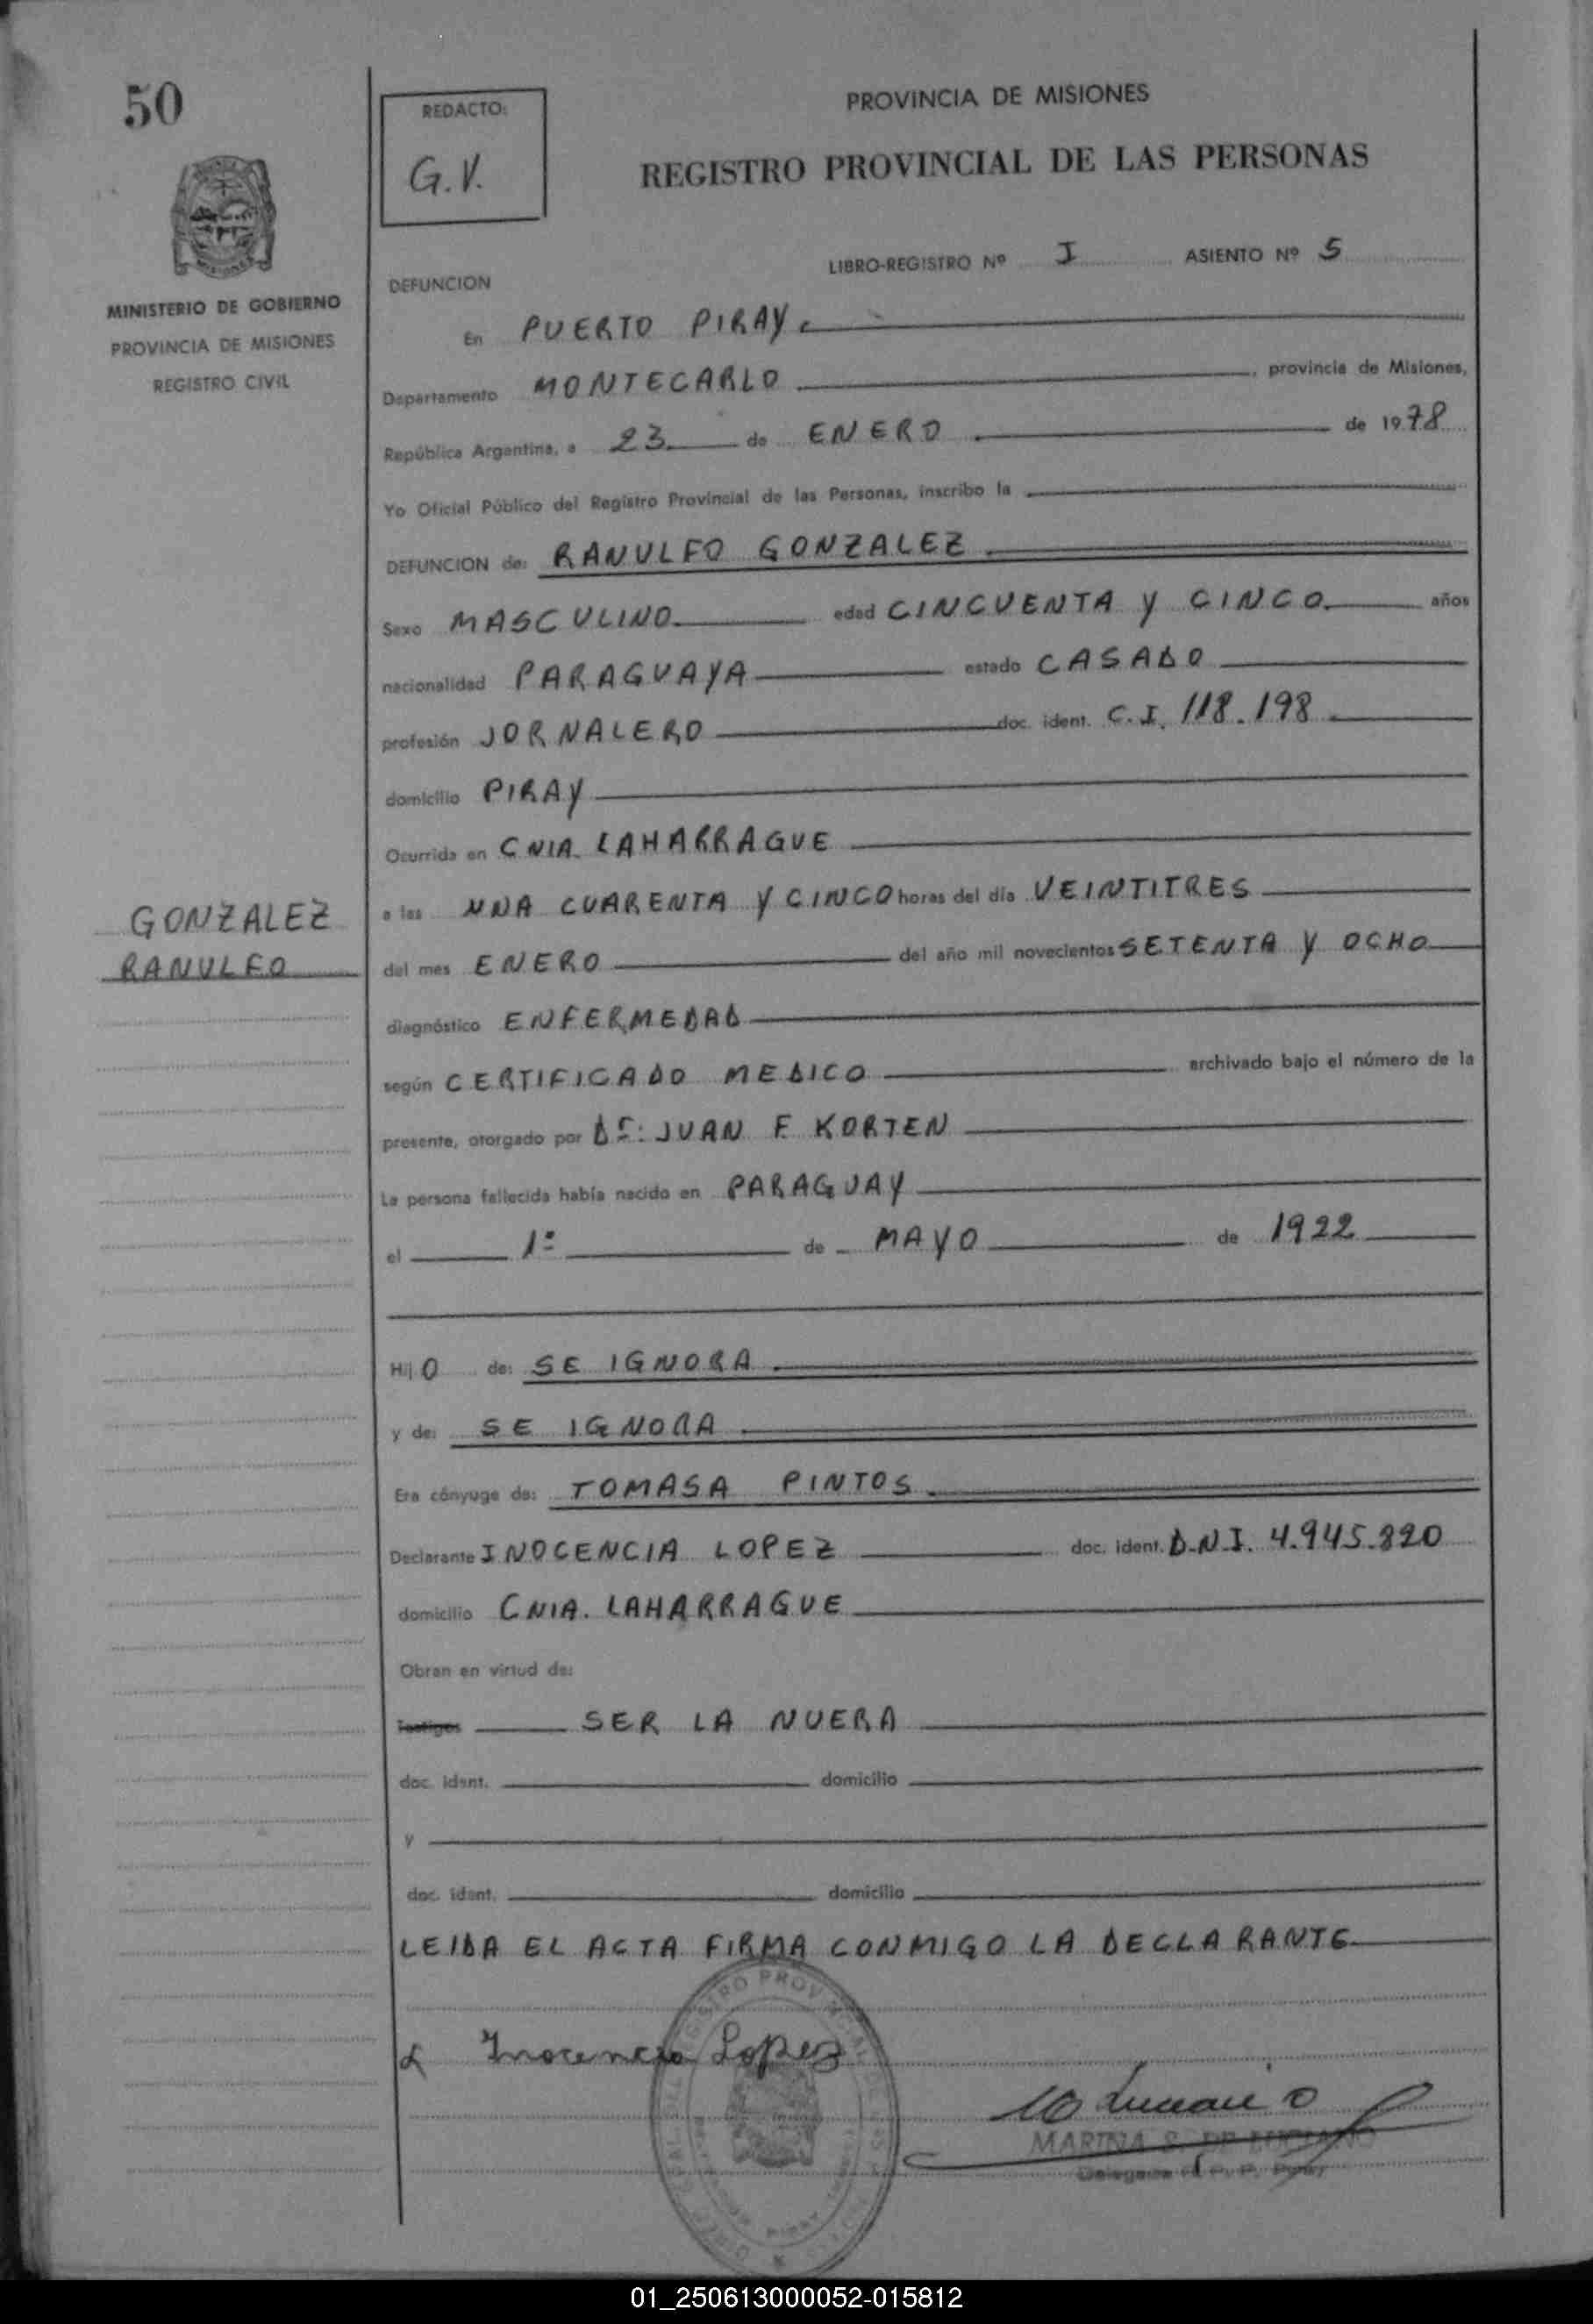 50
REDACTO:
G.V.
PROVINCIA DE MISIONES
REGISTRO PROVINCIAL DE LAS PERSONAS
MISIONES
MINISTERIO DE GOBIERNO
PROVINCIA DE MISIONES
REGISTRO CIVIL
LIBRO-REGISTRO Nº I ASIENTO Nº 5
DEFUNCION
En PUERTO PIRAY.
Departamento MONTECARLO, provincia de Misiones,
República Argentina, a 23 de ENERO de 1978
Yo Oficial Público del Registro Provincial de las Personas, inscribo la
DEFUNCION de: RANULFO GONZALEZ
Sexo MASCULINO edad CINCUENTA Y CINCO años
nacionalidad PARAGUAYA estado CASADO
profesión JORNALERO doc. ident. C.I. 118.198
domicilio PIRAY
Ocurrida en CNIA. LAHARRAGUE
GONZALEZ
RANULFO
a las UNA CUARENTA Y CINCO horas del día VEINTITRES
del mes ENERO del año mil novecientos SETENTA Y OCHO
diagnóstico ENFERMEDAD
según CERTIFICADO MEDICO archivado bajo el número de la
presente, otorgado por Dr: JUAN F. KORTEN
La persona fallecida había nacido en PARAGUAY
el 1º de MAYO de 1922
Hij O de: SE IGNORA
y de: SE IGNORA
Era cónyuge de: TOMASA PINTOS
Declarante INOCENCIA LOPEZ doc. ident. D.N.I. 4.945.820
domicilio CNIA. LAHARRAGUE
Obran en virtud de:
Testigos SER LA NUERA
doc. ident. domicilio
y
doc. ident. domicilio
LEIDA EL ACTA FIRMA CONMIGO LA DECLARANTE
Inocencia Lopez
MARINA S. DE LUCIANO
01_250613000052-015812